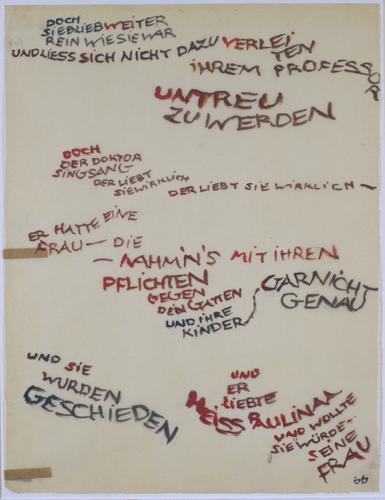 DOCH
SIE BLIEB WEITER
REIN WIE SIE WAR
UND LIESS SICH NICHT DAZU VERLEI
TEN
IHREM PROFESSOR
UNTREU
ZU WERDEN
DOCH
DER DOKTOR
SINGSANG
DER LIEBT
SIE WIRKLICH
DER LIEBT SIE WIRKLICH —
ER HATTE EINE
FRAU — DIE
— NAHM'N'S MIT IHREN
PFLICHTEN
GEGEN
DEN GATTEN
UND IHRE
KINDER
GARNICHT
GENAU
UND SIE
WURDEN
GESCHIEDEN
UND
ER
LIEBTE
HEISS PAULINAA
UND WOLLTE
SIE WÜRDE
SEINE
FRAU